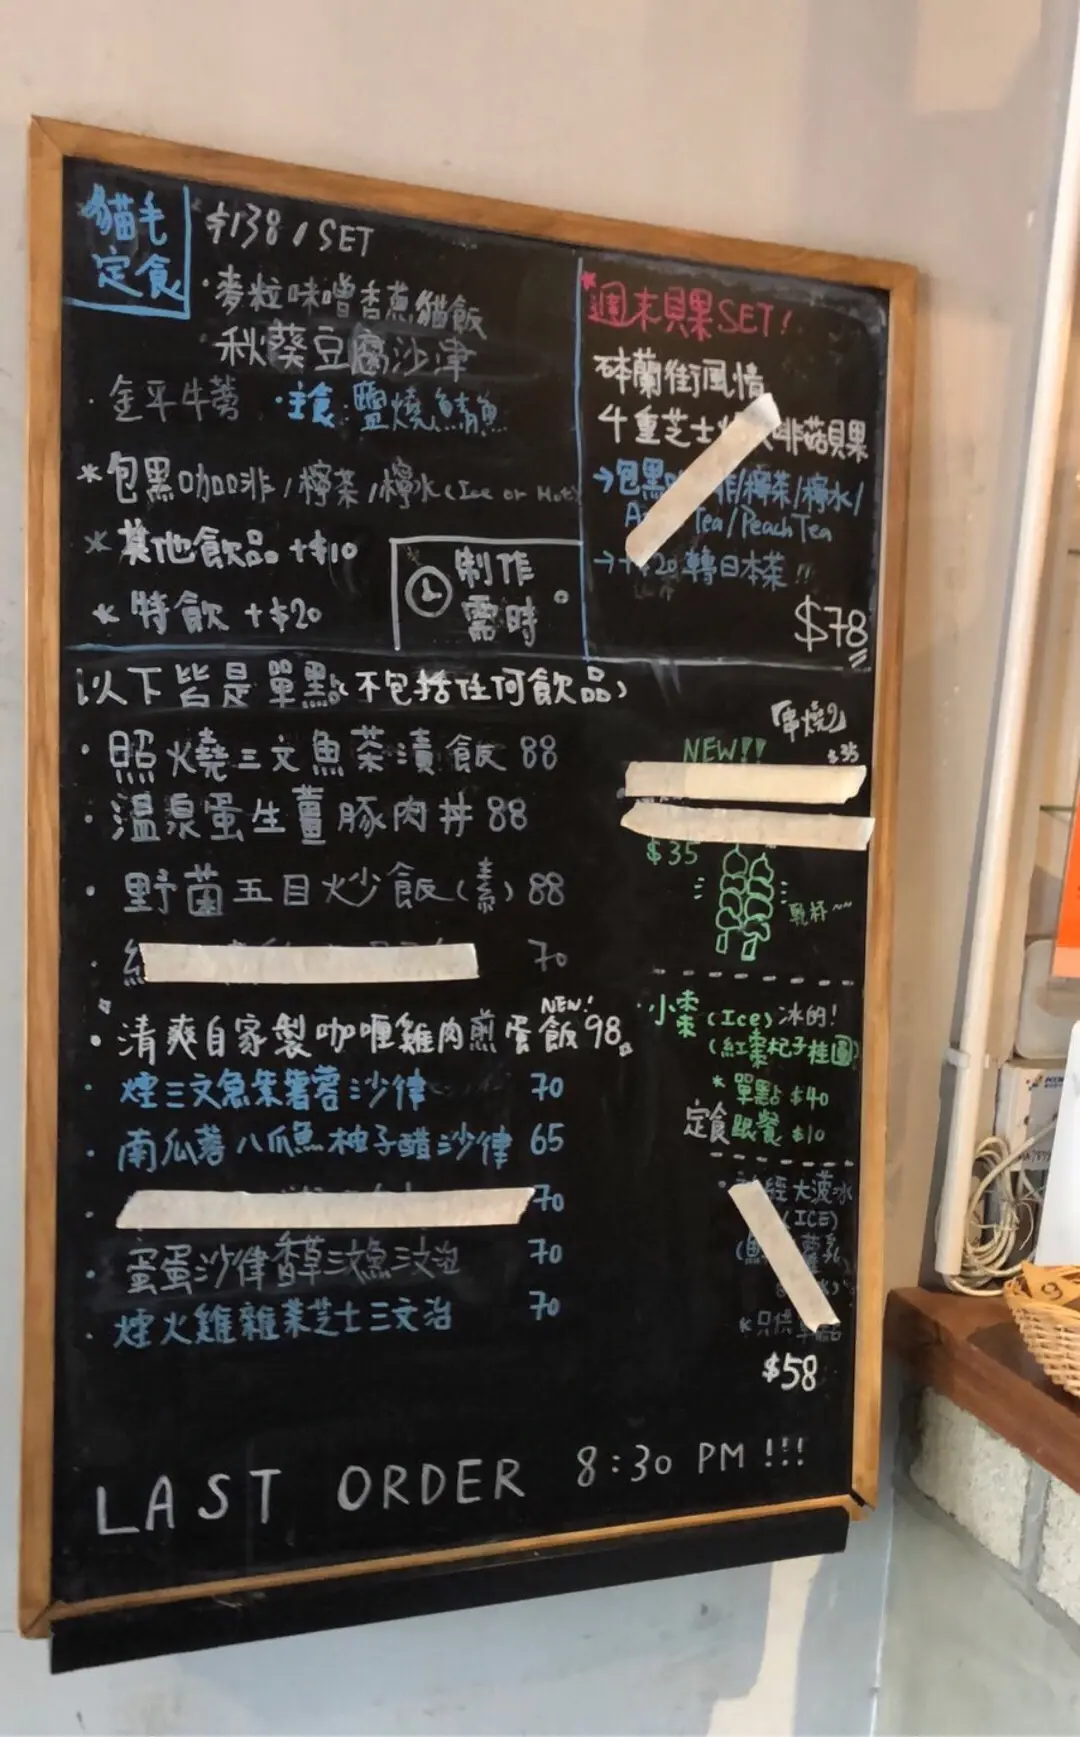 貓毛
定食
$138/SET
·麥粒味噌香蔥貓飯
秋葵豆腐沙律
·金平牛蒡 ·主食:鹽燒鯖魚
*包黑咖啡/檸茶/檸水(Ice or Hot)
*其他飲品+$10
*特飲+$20
制作
需時。
*週末貝果SET!
砵蘭街風情
4重芝士 啡菇貝果
→包黑 啡/檸茶/檸水/
Tea/Peach Tea
→+$20轉日本茶!!
$78
以下皆是單點(不包括任何飲品)
·照燒三文魚茶漬飯 88
·溫泉蛋生薑豚肉丼 88
·野菌五目炒飯(素) 88
· 70
NEW!
·清爽自家製咖喱雞肉煎蛋飯 98
·煙三文魚朱薯蓉沙律 70
·南瓜蓉八爪魚柚子醋沙律 65
· 70
·蛋蛋沙律香草三文魚三文治 70
·煙火雞雜菜芝士三文治 70
『串燒』
$35
NEW!!
$35
乾杯~~
·小棗棗(Ice)冰的!
(紅棗杞子桂圓)
*單點 $40
定食跟餐 $10
經大波冰
(ICE)
*只供單點
$58
LAST ORDER 8:30 PM!!!